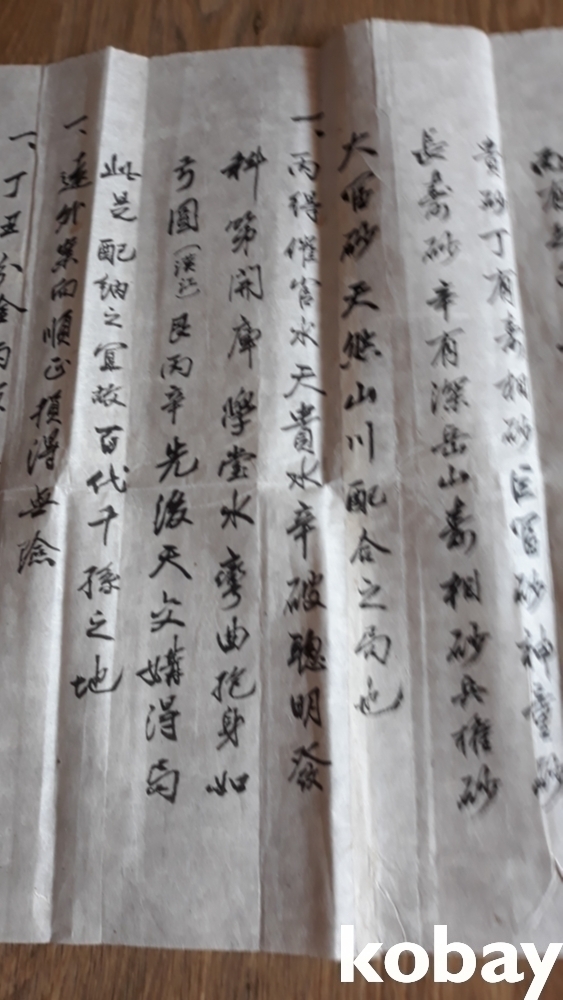 貴砂丁有壽相砂巨富砂神童砂
長壽砂辛有深岳山壽相砂兵權砂
大富砂天然山川配合之局也
一、丙得催官水天貴水辛破聰明發
科第開庫學堂水彎曲抱身如
弓圓艮丙辛先後天交媾得局
此是配納之宜故百代千孫之地
一、遠外案向順正損得無險
一、丁丑分金向
kobay